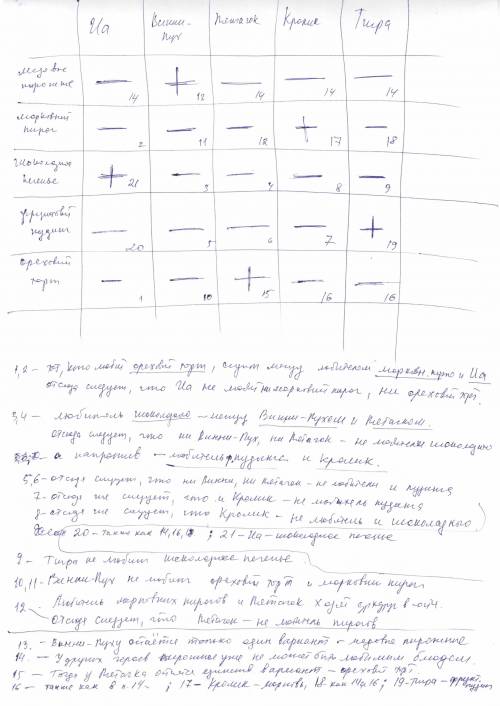 Иа Винни- Пятачок Кролик Тигра
Пух
медовое
пирожные — 14 + 13 — 14 — 14 — 14
морковный
пирог — 2 — 11 — 12 + 17 — 18
шоколадное
печенье + 21 — 3 — 4 — 8 — 9
фруктовый
пудинг — 20 — 5 — 6 — 7 + 19
ореховый
торт — 1 — 10 + 15 — 16 — 16
1,2 – тот, кто любит ореховый торт, сидит между любителем морковн. и Иа
отсюда следует, что Иа не любит ни морковный пирог, ни ореховый торт.
3,4 – любитель шоколадного – между Винни-Пухом и Пятачком.
Отсюда следует, что ни Винни-Пух, ни Пятачок – не любители шоколадного
а напротив – любитель пудинга и Кролик.
5,6 – отсюда следует, что ни Винни, ни Пятачок – не любители и пудинга
7 – отсюда же следует, что и Кролик – не любитель пудинга
8 – отсюда же следует, что Кролик – не любитель и шоколадного.
20 – также как 14, 16, 18 ; 21 – Иа – шоколадное печенье
9 – Тигра не любит шоколадное печенье
10,11 – Винни-Пух не любит ореховый торт и морковный пирог
12 – Любитель морковных пирогов и Пятачок ходят в гости.
Отсюда следует, что Пятачок – не любитель пирогов
13 – Винни-Пуху остаётся только один вариант – медовое пирожное
14 – У других героев пирожное уже не может быть любимым блюдом.
15 – Тогда у Пятачка остаётся единств вариант – ореховый торт
16 – также как в п. 14 – ; 17 – Кролик – морковь, 18 как 14 и 16 ; 19 – Тигра – фрукт. пудинг